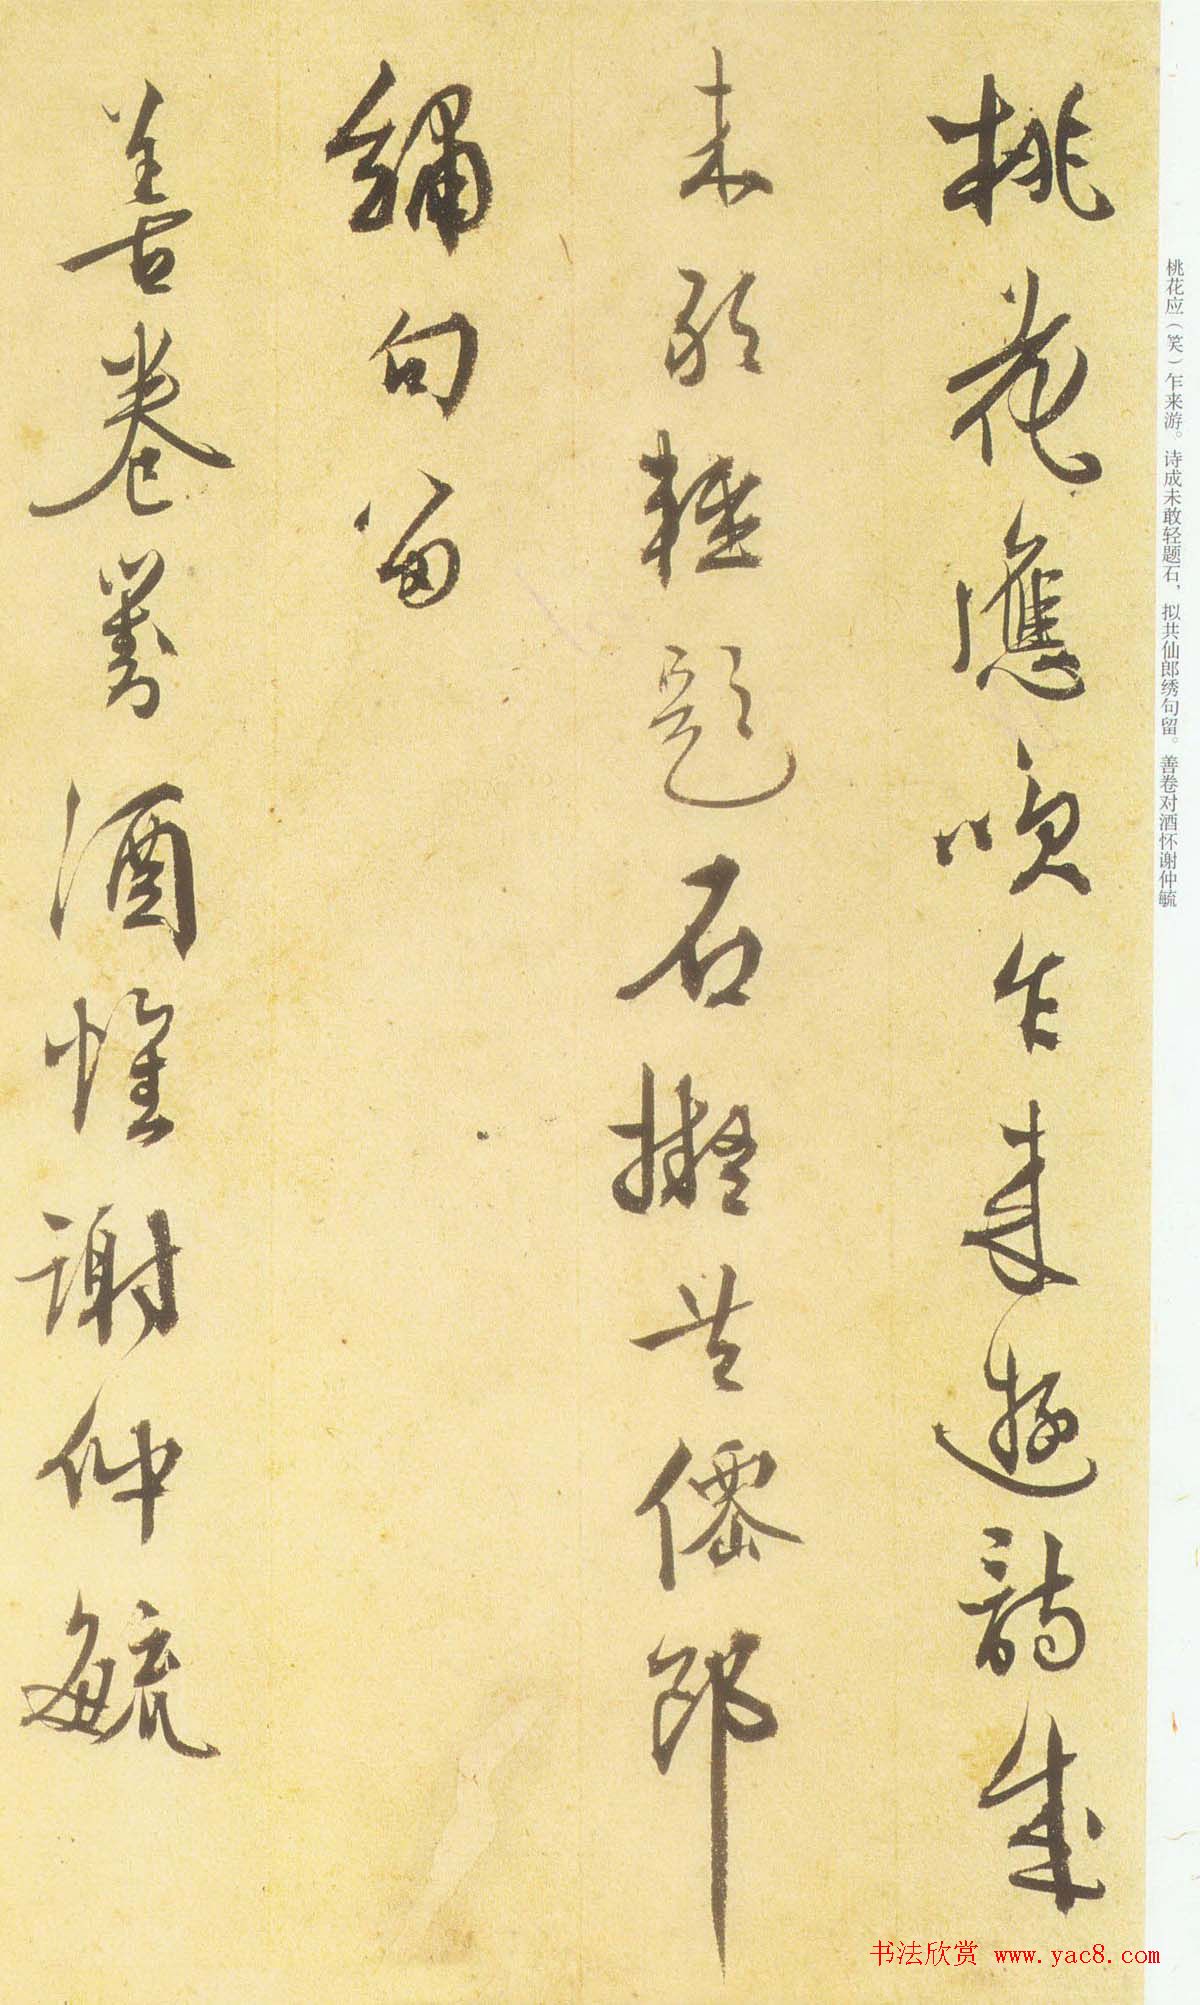 桃花应（笑）乍来游。诗成未敢轻题石，拟共仙郎绣句留。 善卷对酒怀谢仲毓
桃花應咲乍来遊詩成
未敢輕題石擬共僊郎
繡句留
善卷對酒懷謝仲毓
书法欣赏 www.yac8.com